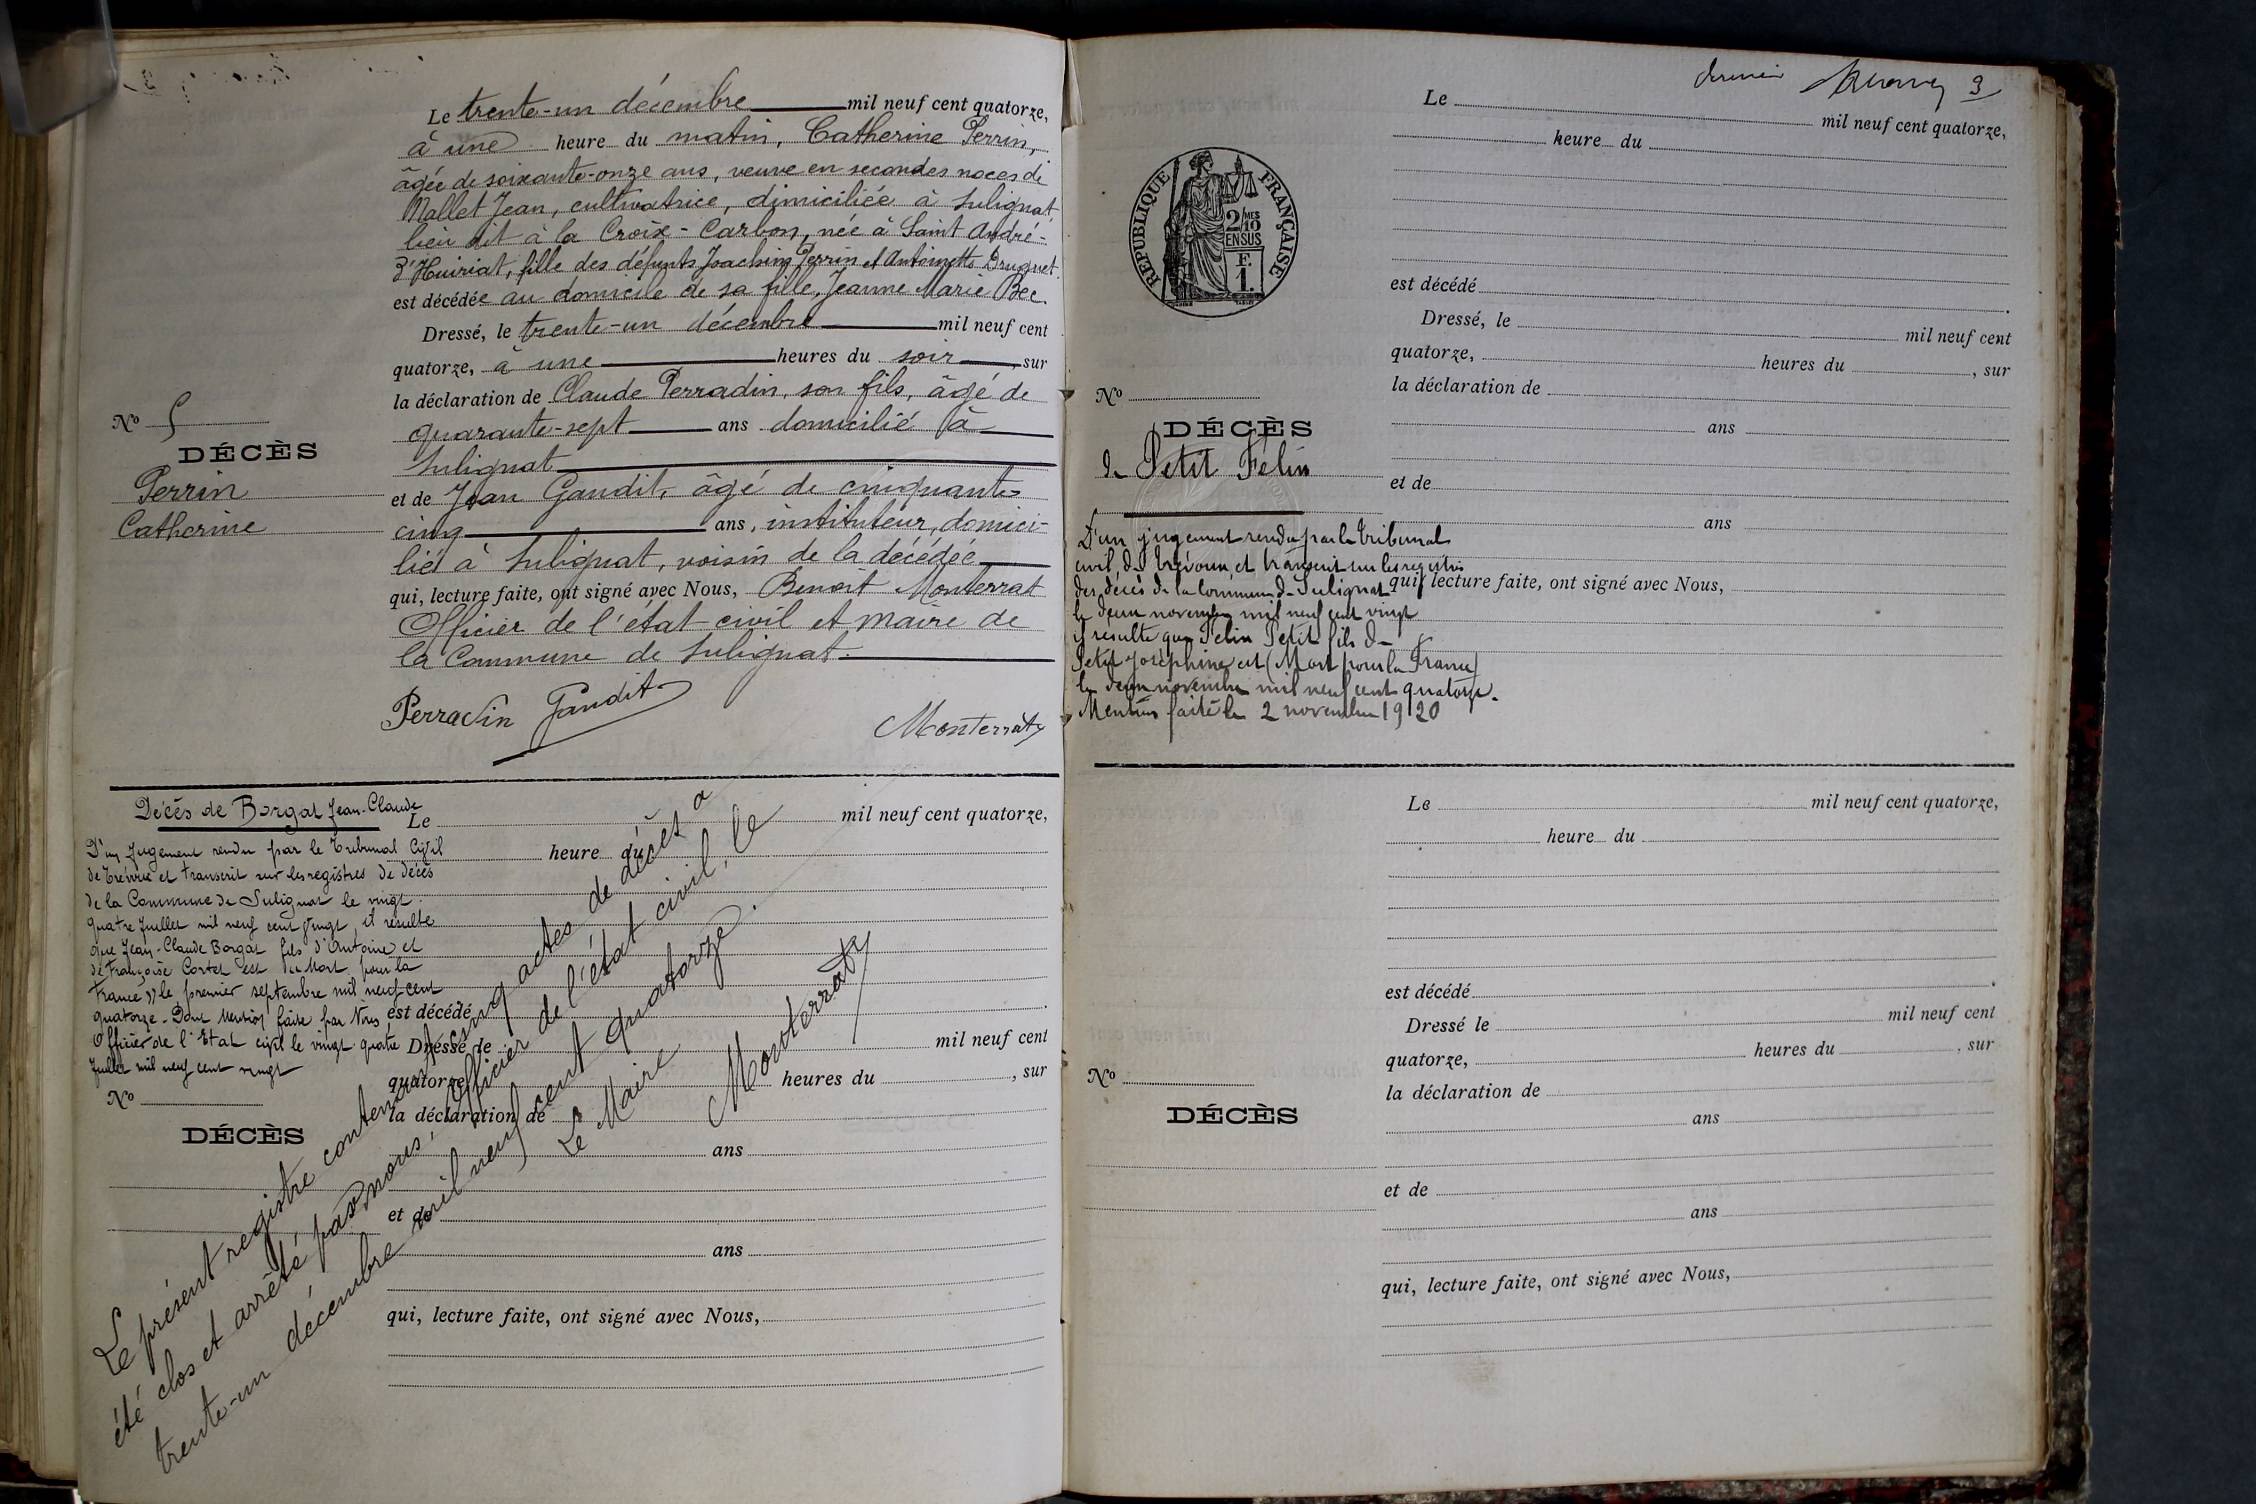 Le trente-un décembre mil neuf cent quatorze,
à une heure du matin, Catherine Perrin,
âgée de soixante-onze ans, veuve en secondes noces de
Mallet Jean, cultivatrice, dimiciliée à Sulignat,
lieu dit à la Croix-Carbon, née à Saint André-
d'Huiriat, fille des défunts Joachim Perrin et Antoinette
est décédée au domicile de sa fille, Jeanne Marie Bec.
Dressé, le trente-un décembre mil neuf cent
quatorze, à une heures du soir, sur
la déclaration de Claude Perradin, son fils, âgé de
quarante-sept ans domicilié à
Sulignat
et de Jean Gaudit, âgé de cinquante
cinq ans, instituteur, domici-
lié à Sulignat, voisin de la décédée
qui, lecture faite, ont signé avec Nous, Benoit Monterrat
Officier de l'état civil et maire de
la Commune de Sulignat.
Perradin Gaudit
Monterrat
No 5
DÉCÈS
Perrin
Catherine
Décès de Borgat Jean-Claude
D'un Jugement rendu par le Tribunal Civil
de Trévoux et transcrit sur les registres de décès
de la Commune de Sulignat le vingt
quatre Juillet mil neuf cent vingt, il résulte
que Jean-Claude Borgat fils d'Antoine et
de Françoise Cortet est Mort pour la
France » le premier septembre mil neuf cent
quatorze - Dont Mention faite par Nous
Officier de l'Etat civil le vingt quatre
Juillet mil neuf cent vingt
No
DÉCÈS
Le mil neuf cent quatorze,
heure du
est décédé
Dressé le mil neuf cent
quatorze, heures du , sur
la déclaration de
ans
et de
ans
qui, lecture faite, ont signé avec Nous,
Le présent registre contenant cinq actes de décès a
été clos et arrêté par nous, Officier de l'état civil, le
trente-un décembre mil neuf cent quatorze.
Le Maire
Monterrat
dernier 3
REPUBLIQUE FRANÇAISE
2/10 MES
EN SUS
F.
1.
Le mil neuf cent quatorze,
heure du
est décédé
Dressé, le mil neuf cent
quatorze, heures du , sur
la déclaration de
ans
et de
ans
qui, lecture faite, ont signé avec Nous,
No
DÉCÈS
de Petit Félin
D'un jugement rendu par le tribunal
civil de Trévoux et transcrit sur les registres
des décès de la Commune de Sulignat
le deux novembre mil neuf cent vingt
il résulte que Félin Petit fils de
Petit Joséphine est (Mort pour la France)
le deux novembre mil neuf cent quatorze.
Mention faite le 2 novembre 1920
Le mil neuf cent quatorze,
heure du
est décédé
Dressé le mil neuf cent
quatorze, heures du , sur
la déclaration de
ans
et de
ans
qui, lecture faite, ont signé avec Nous,
No
DÉCÈS